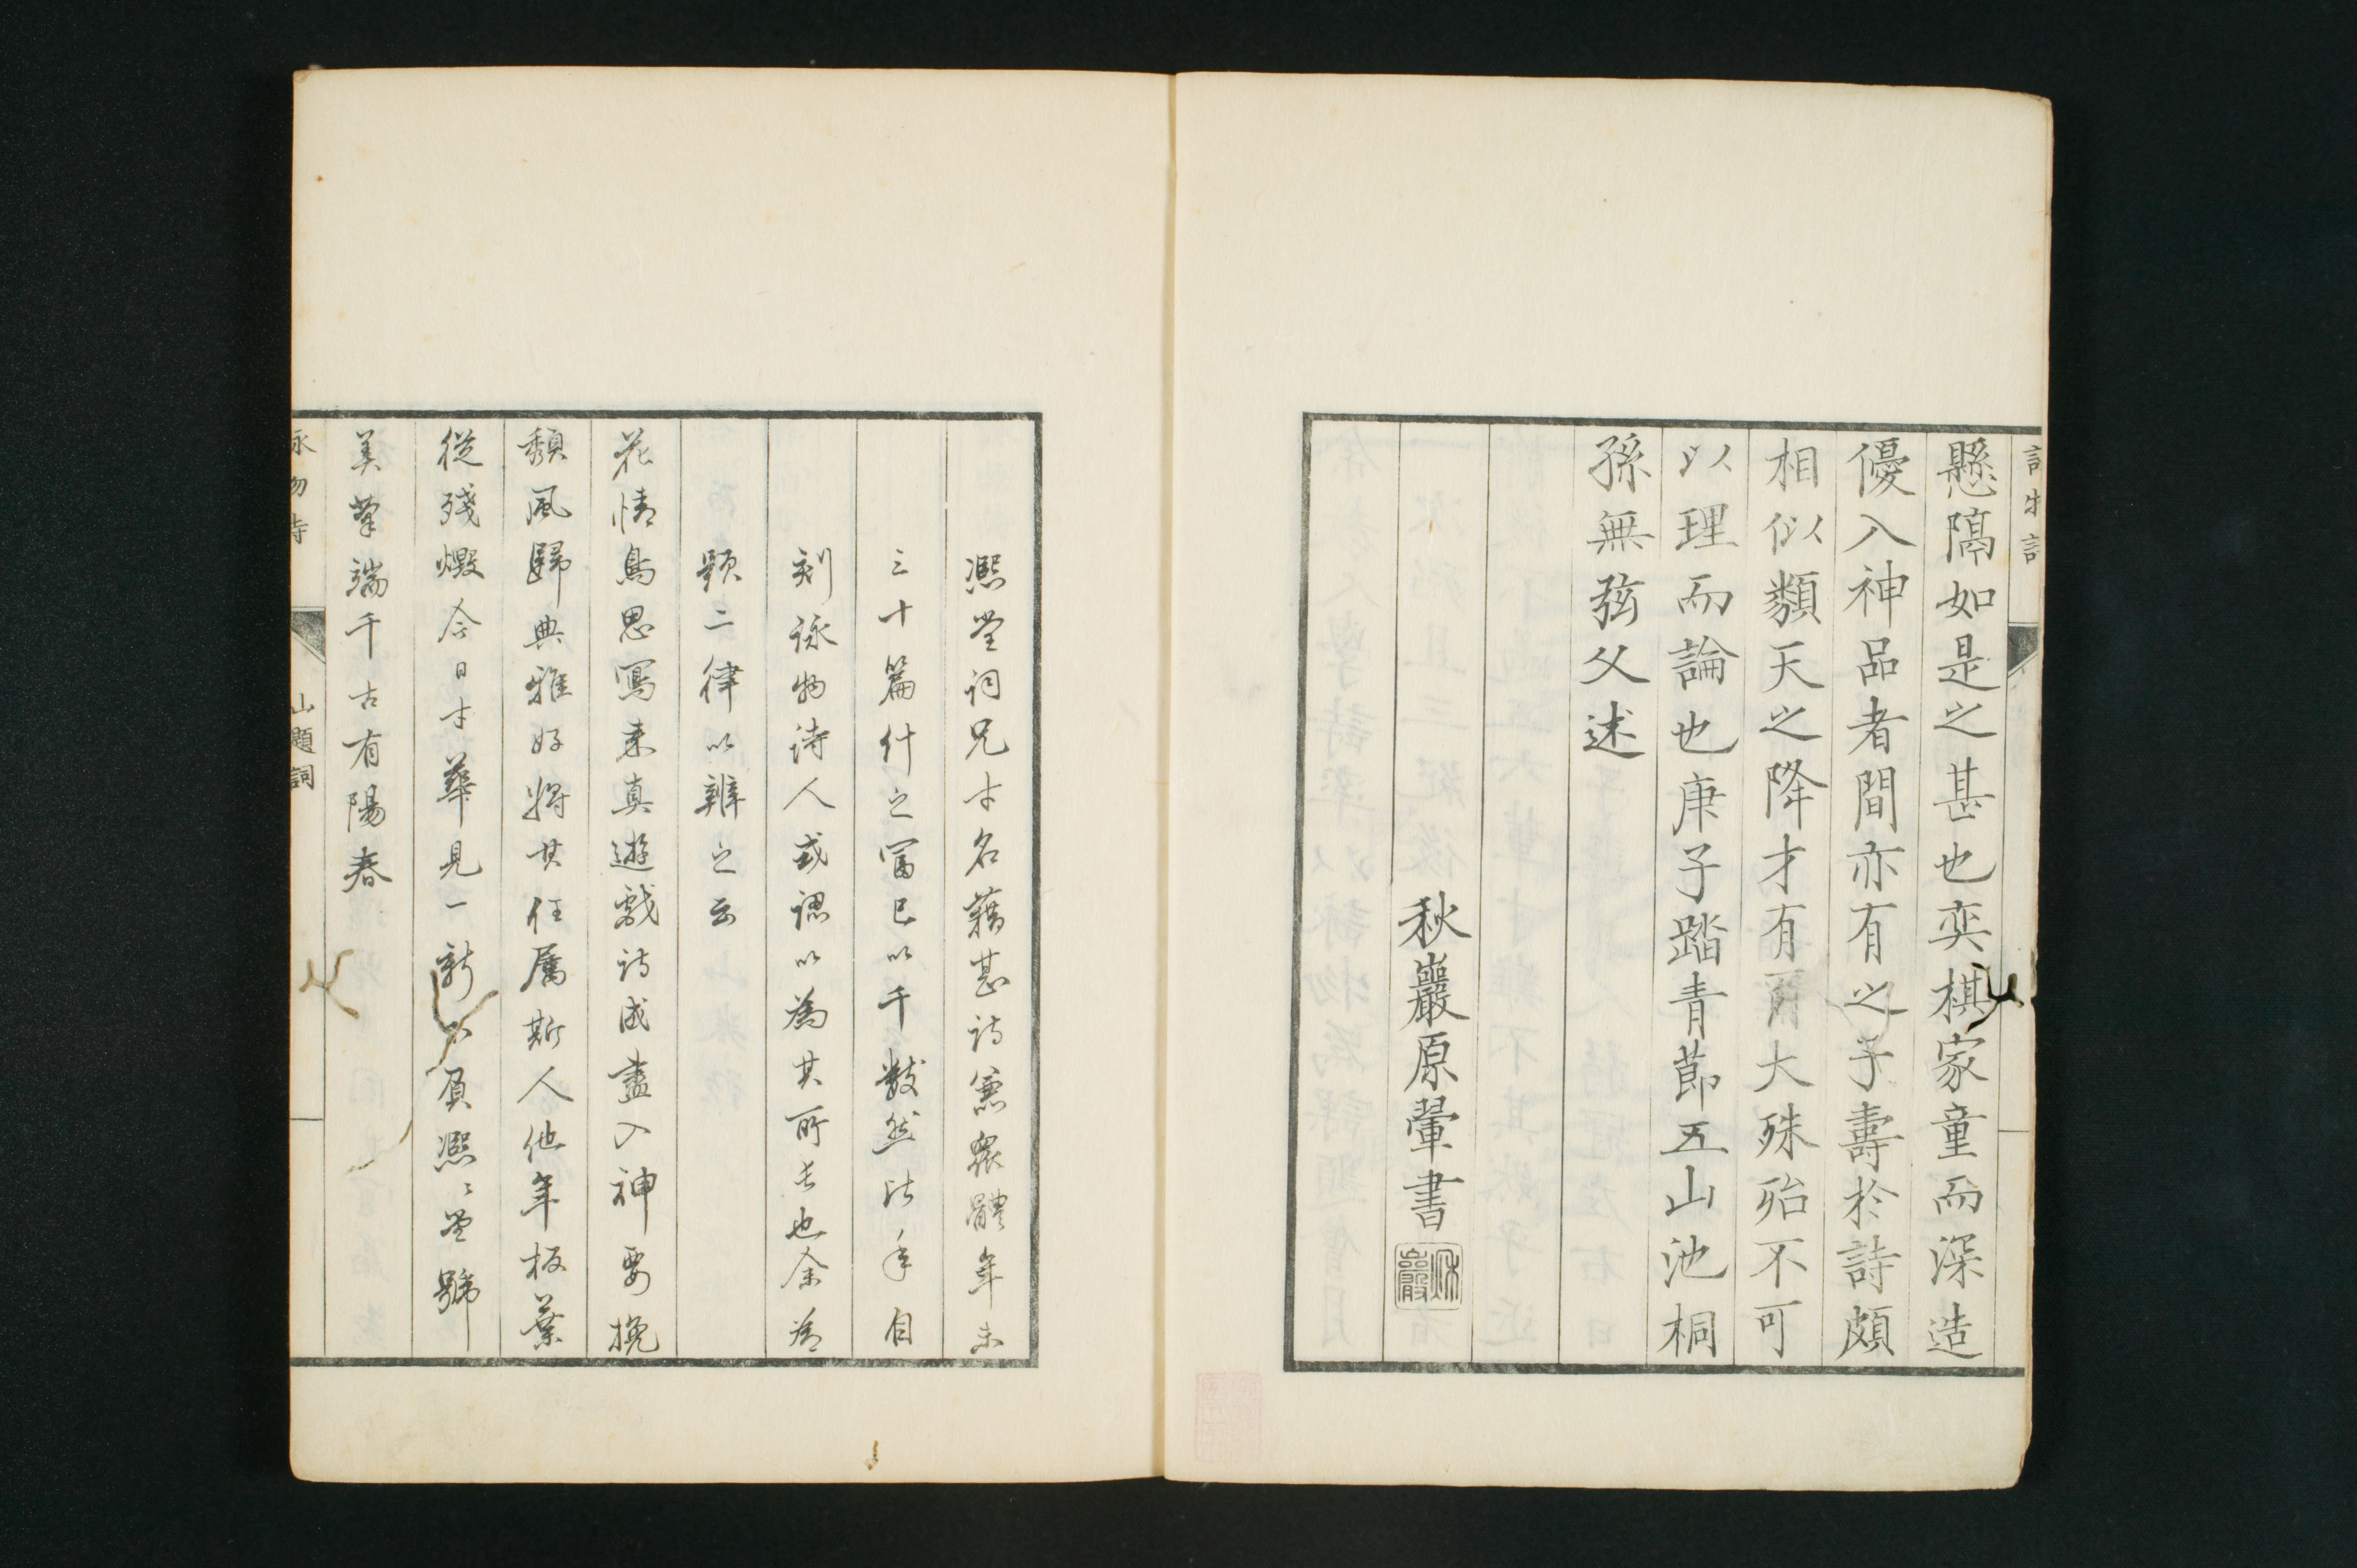 懸隔如是之甚也奕棋家童而深造
優入神品者間亦有之子壽於詩頗
相似類天之降才有爾大殊殆不可
以理而論也庚子踏青節五山池桐
孫無弦父述
秋巖原翬書
熈堂詞兄才名藉甚詩兼衆體年未
三十篇什之富已以千數然此手自
刻詠物詩人或認以為其所長也余為
題二律以辨之云
花情鳥思寫来真遊戲詩成盡入神要挽
頽風歸典雅好將其任屬斯人他年板葉
從殘燬今日才華見一新不負熈々堂號
美筆端千古有陽春
詠物詩
山題詞